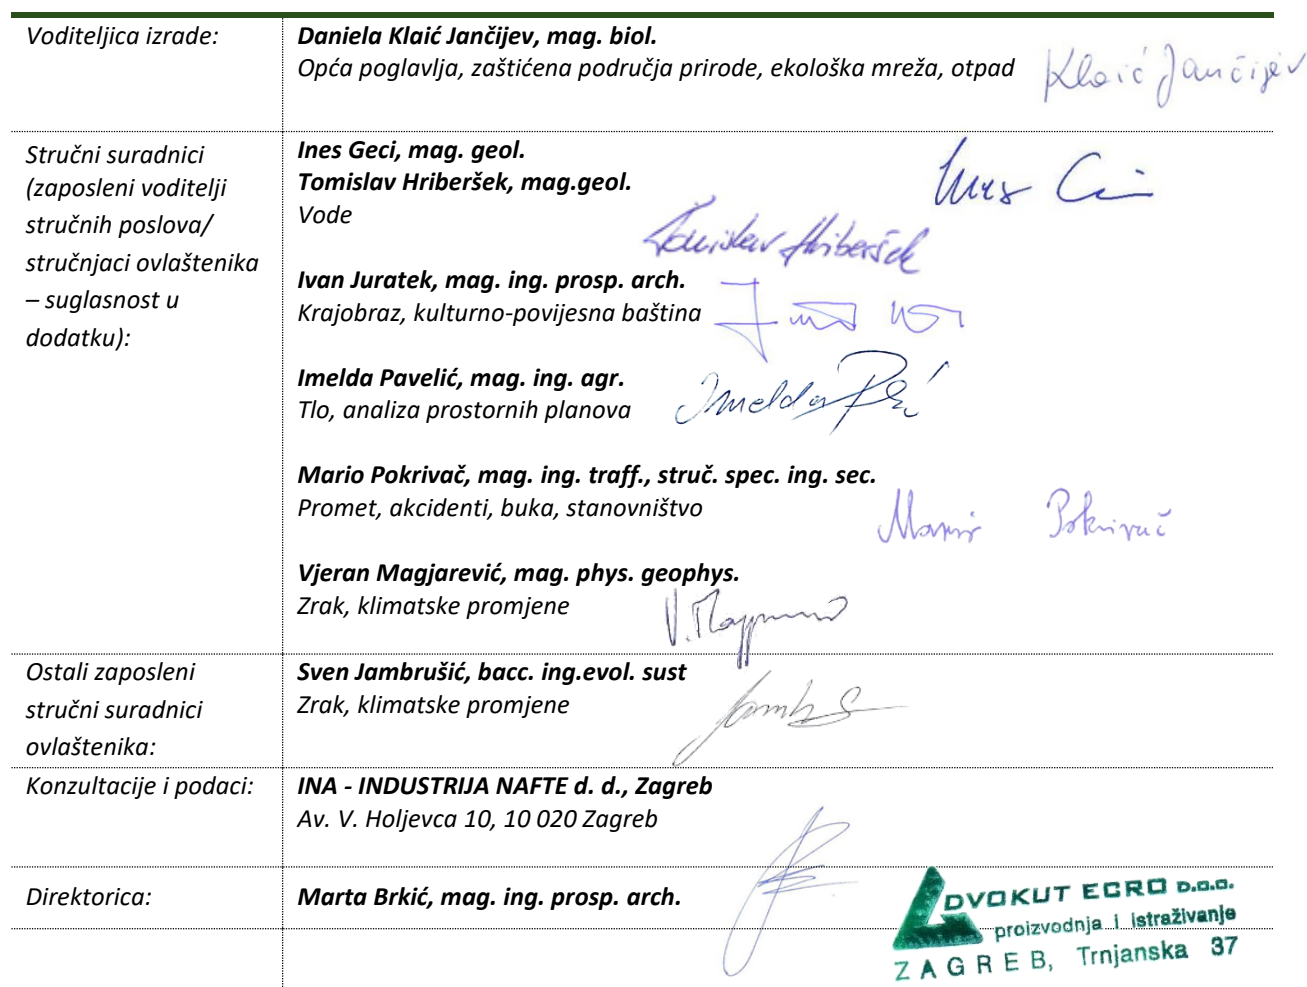 Voditeljica izrade:
Daniela Klaić Jančijev, mag. biol.
Opća poglavlja, zaštićena područja prirode, ekološka mreža, otpad
Klaić Jančijev
Stručni suradnici
(zaposleni voditelji
stručnih poslova/
stručnjaci ovlaštenika
– suglasnost u
dodatku):
Ines Geci, mag. geol.
Tomislav Hriberšek, mag.geol.
Vode
Tomislav Hriberšek
Ivan Juratek, mag. ing. prosp. arch.
Krajobraz, kulturno-povijesna baština
Imelda Pavelić, mag. ing. agr.
Tlo, analiza prostornih planova
Imelda
Mario Pokrivač, mag. ing. traff., struč. spec. ing. sec.
Promet, akcidenti, buka, stanovništvo
Mario Pokrivač
Vjeran Magjarević, mag. phys. geophys.
Zrak, klimatske promjene
Ostali zaposleni
stručni suradnici
ovlaštenika:
Sven Jambrušić, bacc. ing.evol. sust
Zrak, klimatske promjene
Konzultacije i podaci:
INA - INDUSTRIJA NAFTE d. d., Zagreb
Av. V. Holjevca 10, 10 020 Zagreb
Direktorica:
Marta Brkić, mag. ing. prosp. arch.
DVOKUT ECRO D.O.O.
proizvodnja i istraživanje
ZAGREB, Trnjanska 37